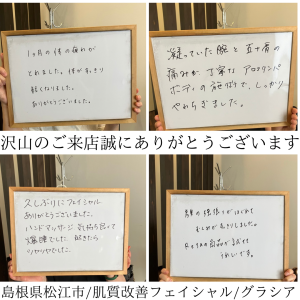 1ヶ月の体の疲れが
とれました。体がすっきり
軽くなりました。
ありがとうございました。
凝っていた腕と五十肩の
痛みが、丁寧なアロマリンパ
ボディの施術で、しっかり
やわらぎました。
沢山のご来店誠にありがとうございます
久しぶりにフェイシャル
ありがとうございました。
ハンドマッサージ 気持ち良くて
爆睡でした 起きたら
ツヤツヤでした。
がほぐれて
むくみが
商品が試せて
うれしいです。
島根県松江市/肌質改善フェイシャル/グラシア